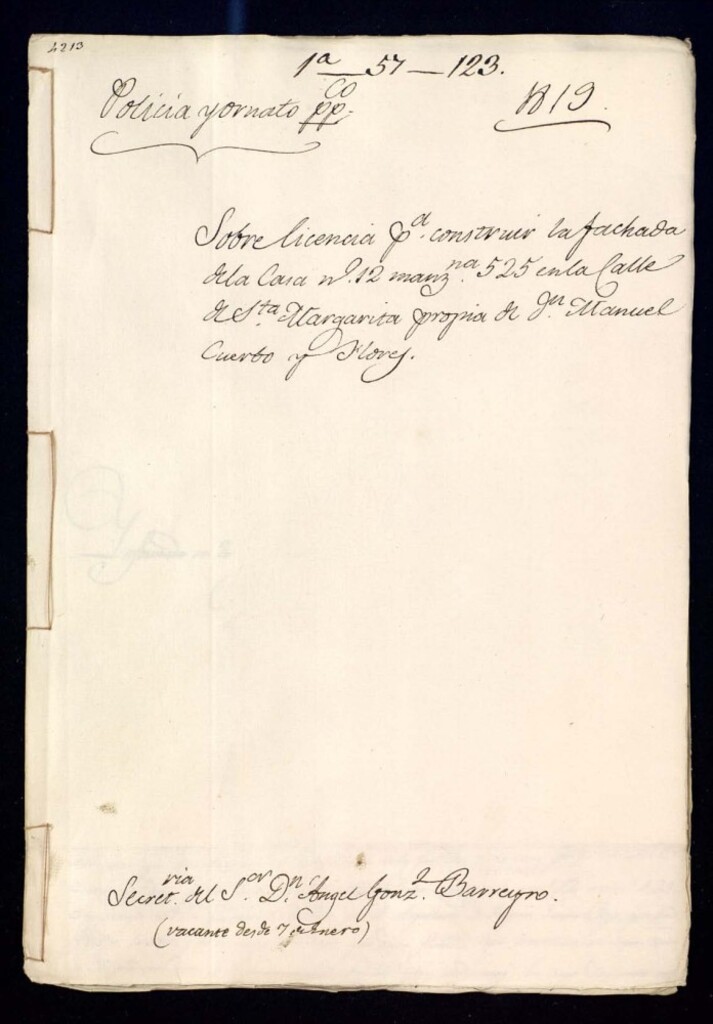 4213
1ª — 57 — 123.
Policia y ornato ppCO.
1819.
Sobre licencia pª. construir la fachada
de la Casa nº. 12 manzna. 525 en la Calle
de Sta. Margarita propia de Dn. Manuel
Cuerbo y Flores.
Secretria. del Sor. Dn. Angel Gonzz. Barreyro.
(vacante desde 7 de Enero)